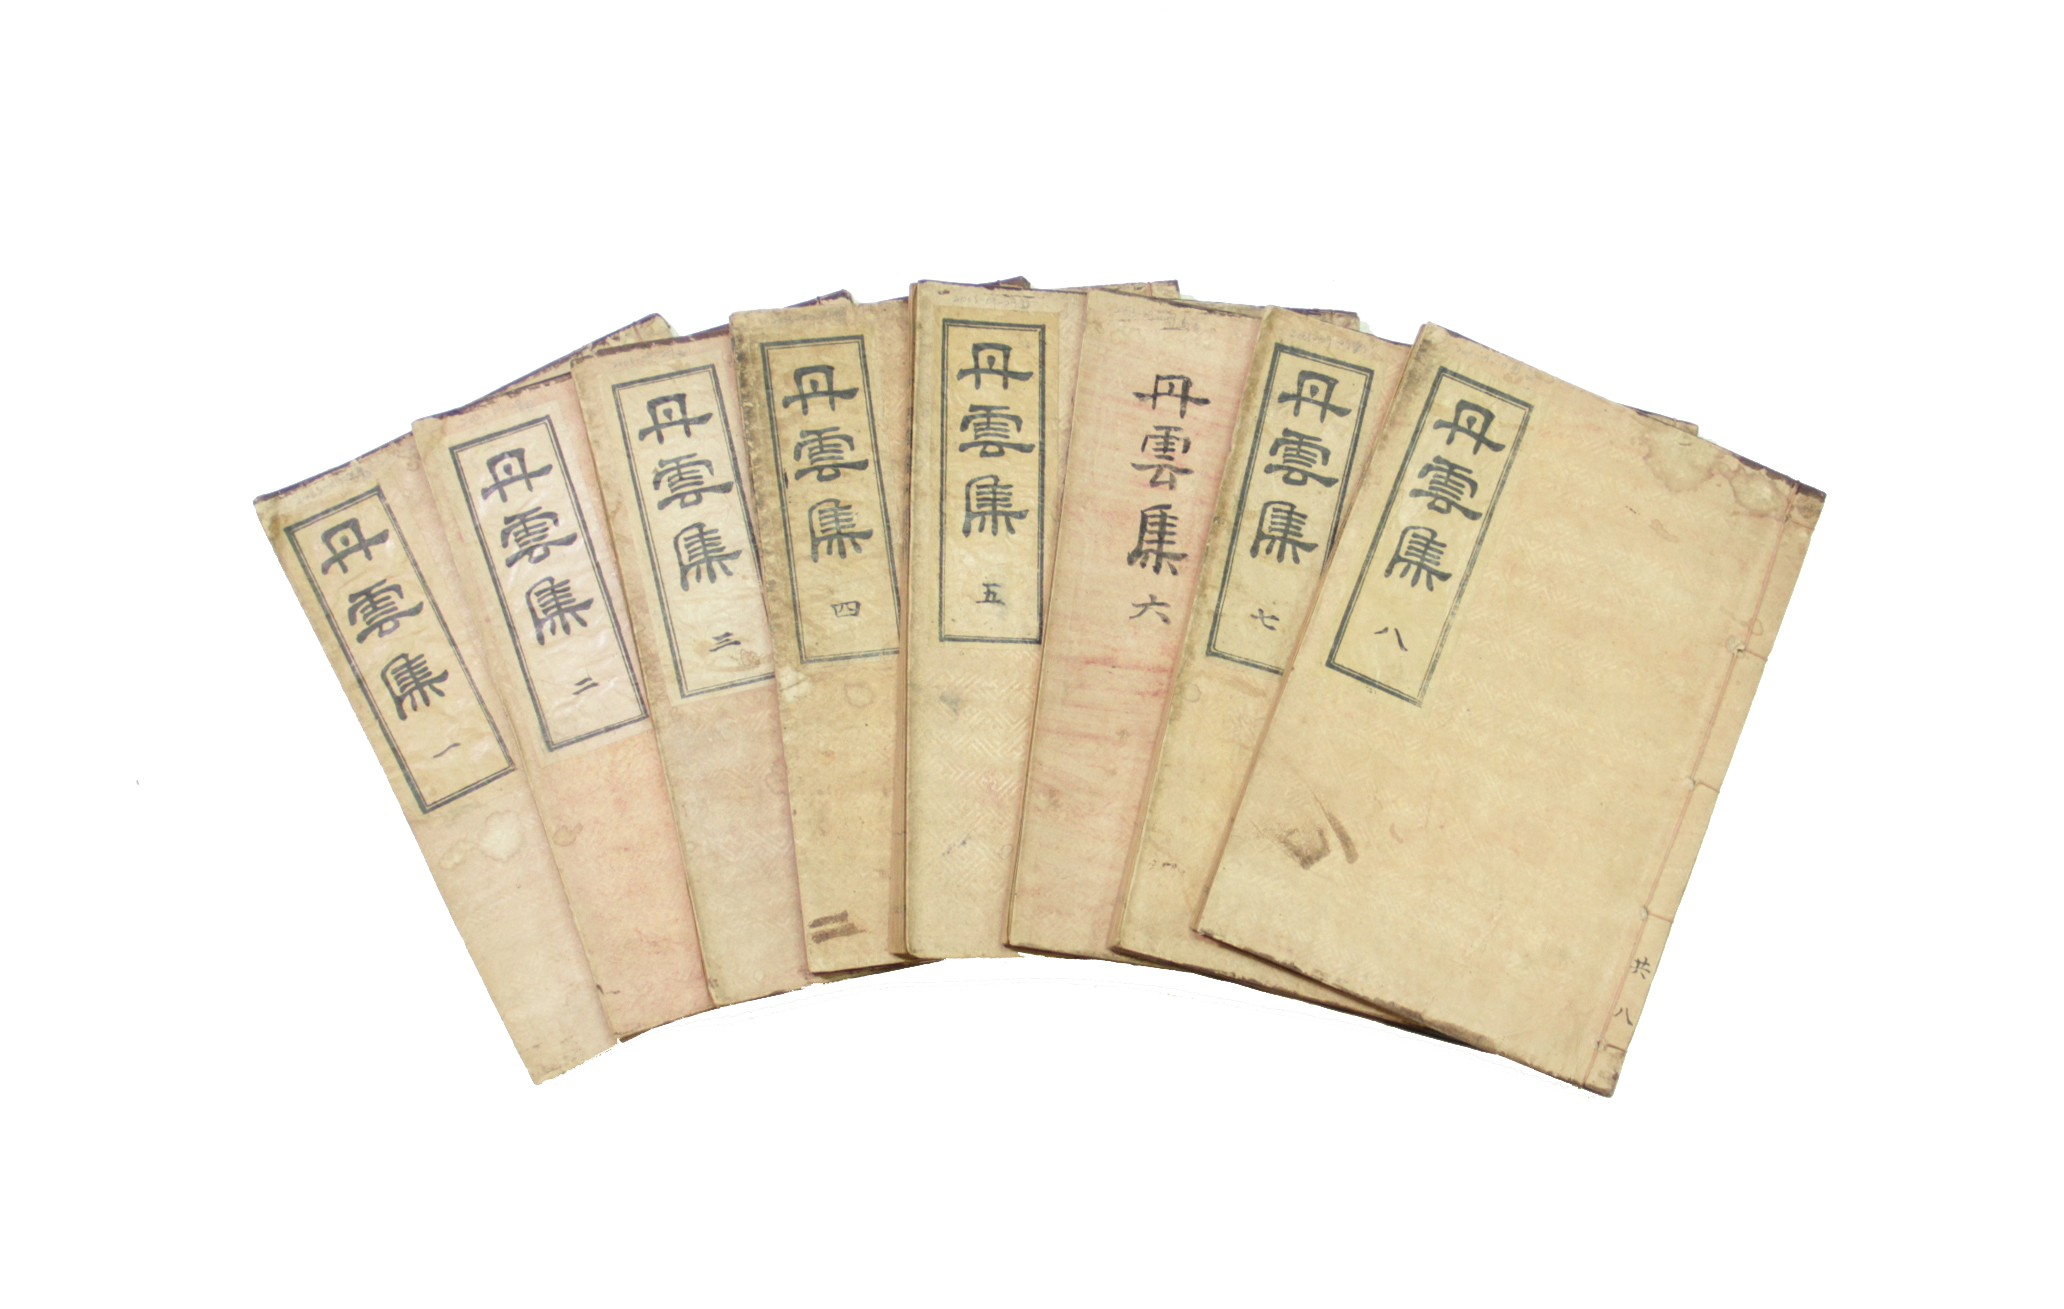 丹雲集 一
丹雲集 二
丹雲集 三
丹雲集 四
丹雲集 五
丹雲集 六
丹雲集 七
丹雲集 八
共八